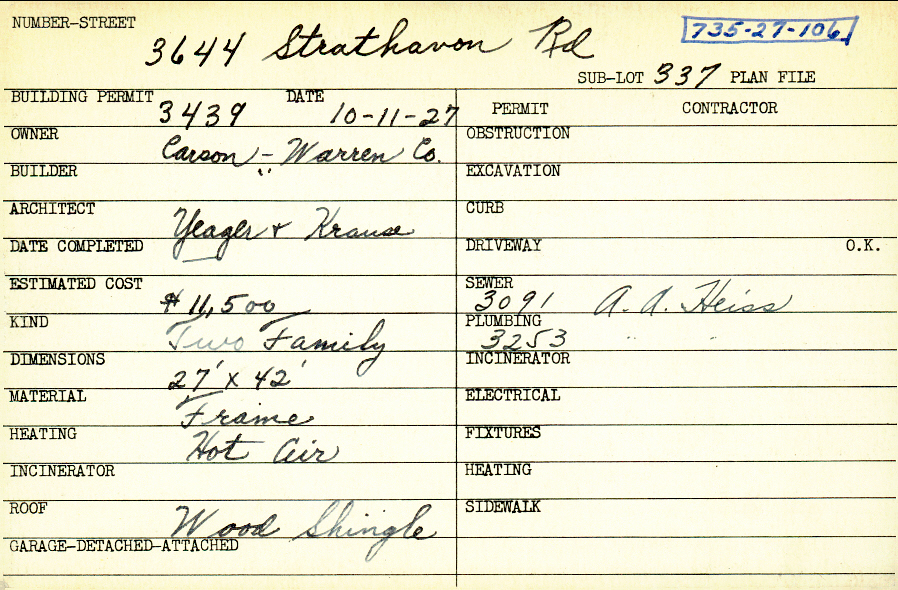 NUMBER-STREET 3644 Strathavon Rd 735-27-106
SUB-LOT 337 PLAN FILE
BUILDING PERMIT 3439 DATE 10-11-27 PERMIT CONTRACTOR
OWNER Carson-Warren Co. OBSTRUCTION
BUILDER " EXCAVATION
ARCHITECT Yeager & Krause CURB
DATE COMPLETED DRIVEWAY O.K.
ESTIMATED COST $11,500 SEWER 3091 A. A. Heiss
KIND Two Family PLUMBING 3253 " "
DIMENSIONS 27' x 42' INCINERATOR
MATERIAL Frame ELECTRICAL
HEATING Hot Air FIXTURES
INCINERATOR HEATING
ROOF Wood Shingle SIDEWALK
GARAGE-DETACHED-ATTACHED